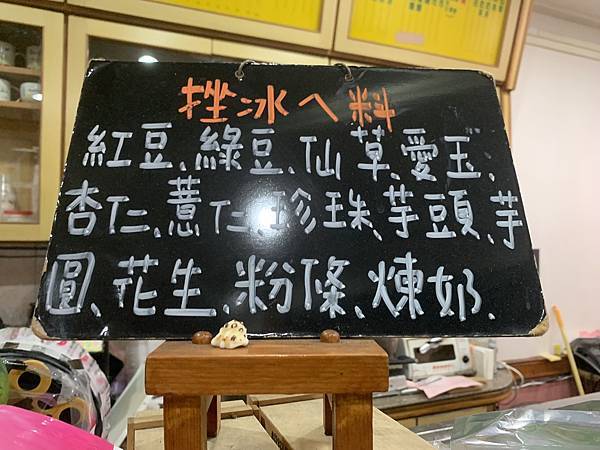 挫冰八料
紅豆、綠豆、仙草、愛玉、
杏仁、薏仁、珍珠、芋頭、芋
圓、花生、粉條、煉奶、